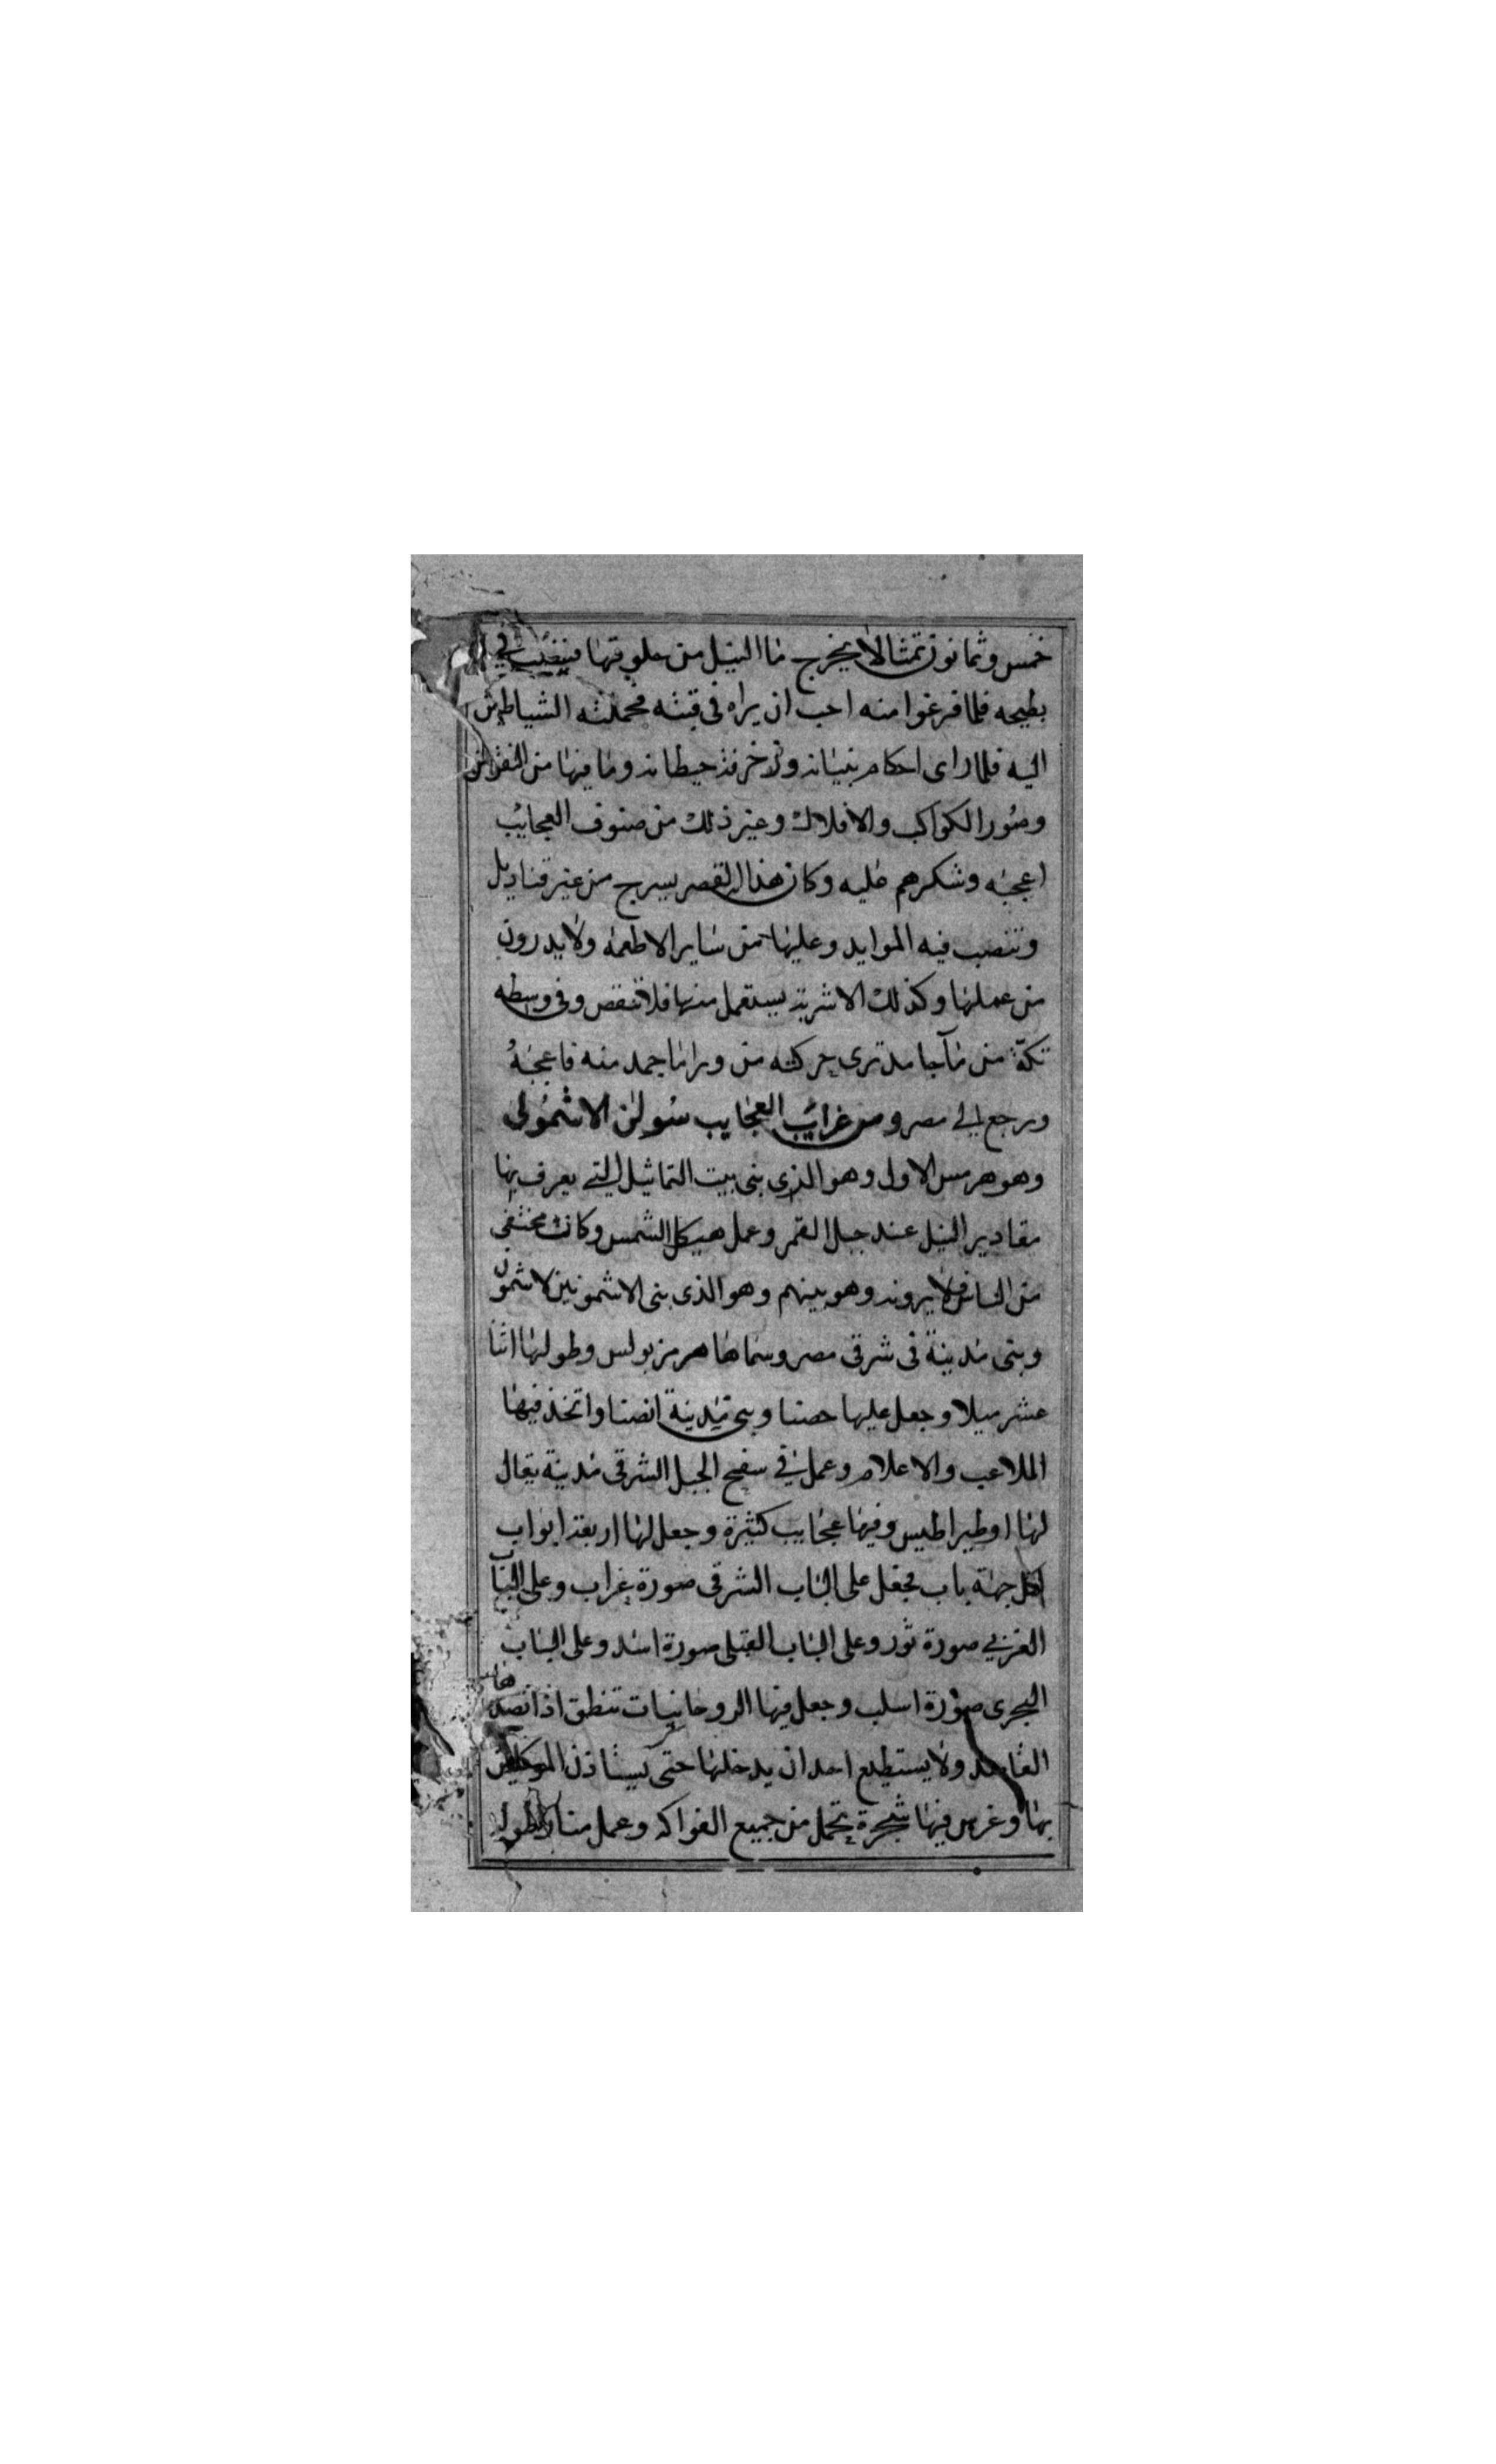 خمس وثمانون تمثالا يخرج ماالنيل من حلوقها فينصب في
بطيحه فلما فرغوا منه احب ان يراه في قبته فحملته الشياطين
اليه فلما راى احكام بنيانه وزخرفة حيطانه وما فيها من النقوش
وصور الكواكب والافلاك وغير ذلك من صنوف العجايب
اعجبه وشكرهم عليه وكان هذا القصر يسرج من غير قناديل
وتنصب فيه الموايد وعليها من ساير الاطعمه ولا يدرون
من عملها وكذلك الاشربة يستعمل منها فلا تنقص وفي وسطه
بركة من مآ جامد ترى حركته من ورا ما جمد منه فاعجبه
ورجع الى مصر ومن غرايب العجايب الاشمولى
وهو هرمس الاول وهو الذي بنى بيت التماثيل التي يعرف بها
مقادير النيل عند جبل القمر وعمل هيكل الشمس وكان مختفى
من الناس فلا يرونه وهو بينهم وهو الذى بنى الاشمونين لاشمون
وبنى مدينة في شرقى مصر وسماها هرمزبولس وطولها اثنا
عشر ميلا وجعل عليها حصنا وبنى مدينة انصنا واتخذ فيها
الملاعب والاعلام وعمل في سفح الجبل الشرقى مدينة يقال
لها اوطيراطيس وفيها عجايب كثيرة وجعل لها اربعة ابواب
لكل جهة باب فجعل على الباب الشرقى صورة غراب وعلى الباب
الغربي صورة ثور وعلى الباب القبلى صورة اسد وعلى الباب
البحرى صورة اسلب وجعل فيها الروحانيات تنطق اذا قصدها
القاصد ولا يستطيع احد ان يدخلها حتى يستاذن الموكلين
بها وغرس فيها شجرة تحمل من جميع الفواكه وعمل منارا طوله